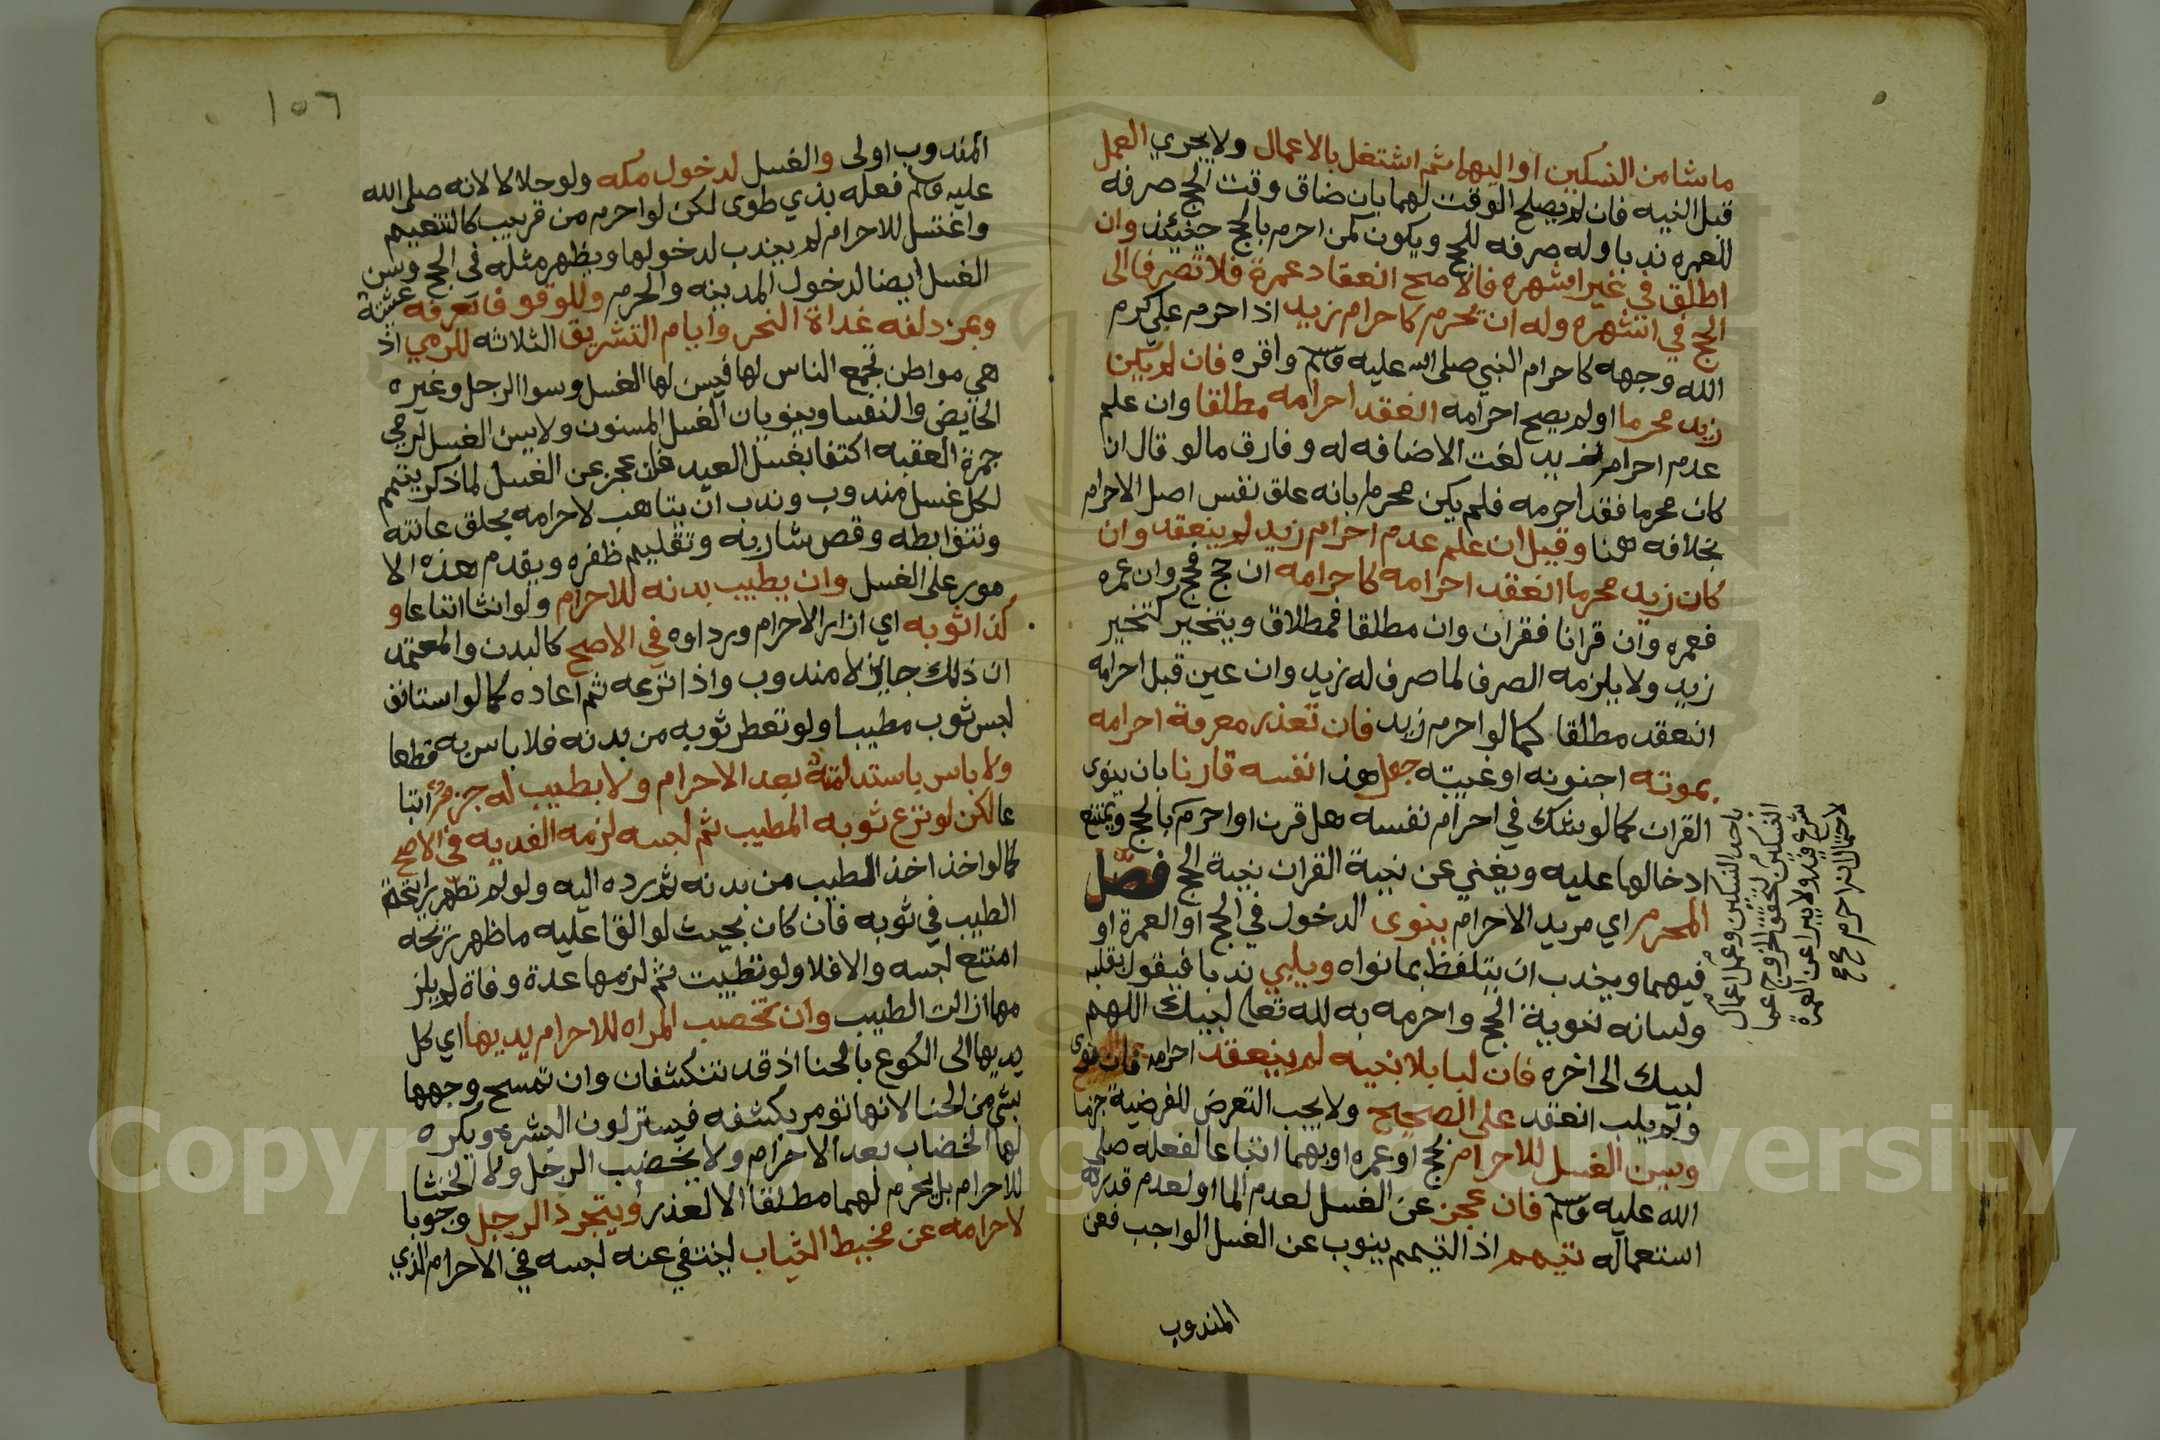 ما شا من النسكين او اليهما ثم اشتغل بالاعمال ولا يجزي العمل
قبل النيه فان لم يصلح الوقت لهما بان ضاق وقت الحج صرفه
للعمره ندبا وله صرفه للحج ويكون كمن احرم بالحج حينئذ وان
اطلق في غير اشهره فالاصح انعقاده عمرة فلا تصرفه الى
الحج في اشهره وله ان يحرم كاحرام زيد اذ احرم علي كرم
الله وجهه كاحرام النبي صلى الله عليه وسلم واقره فان لم يكن
زيد محرما او لم يصح احرامه انعقد احرامه مطلقا وان علم
عدم احرام زيد لغت الاضافه له وفارق ما لو قال ان
كان محرما فقد احرمه فلم يكن محرما بانه علق نفس اصل الاحرام
بخلافه هنا وقيل ان علم عدم احرام زيد لم ينعقد وان
كان زيد محرما انعقد احرامه كاحرامه ان حج فحج وان عمره
فعمره وان قرانا فقران وان مطلقا فمطلاق ويتخير كتخير
زيد ولا يلزمه الصرف لما صرف له زيد وان عين قبل احرامه
انعقد مطلقا كما لو احرم زيد فان تعذر معرفة احرامه
بموته اجنونه او غيبته جعل هذا نفسه قارنا بان ينوى
القران كما لو شك في احرام نفسه هل قرن او احرم بالحج ويمتنع
ادخالها عليه ويغني عن نية القران نية الحج فصل
المحرم اي مريد الاحرام ينوى الدخول في الحج او العمرة او
فيهما ويندب ان يتلفظ بما نواه ويلبي ندبا فيقول بقلبه
ولسانه نويت الحج واحرمه به لله تعلى لبيك اللهم
لبيك الى اخره فان لبا بلا نيه لم ينعقد احرامه فان نوى
ولم يلب انعقد على الصحيح ولا يجب التعرض للفرضية جزما
ويسن الغسل للاحرام بحج او عمره او بهما اتباعا لفعله صلى
الله عليه وسلم فان عجز عن الغسل لعدم الما او لعدم قدرته
استعماله تيمم اذ التيمم ينوب عن الغسل الواجب فعن
المندوب
باحد النسكين وعمل اعمال
النسكين يتحقق الخروج عما
شرع فيه ولا يبرا عن العمرة
لاحتمال انه احرم بحج
١٥٦
المندوب اولى والغسل لدخول مكه ولو حلالا لانه صلى الله
عليه وسلم فعله بذي طوى لكن لو احرم من قريب كالتنعيم
واغتسل للاحرام لم يندب لدخولها ويظهر مثله في الحج ويسن
الغسل ايضا لدخول المدينه والحرم وللوقوف بعرفه عشية
وبمزدلفه غداة النحر وايام التشريق الثلاثه للرمي اذ
هي مواطن تجمع الناس لها فيسن لها الغسل وسوا الرجل وغيره
الحايض والنفسا وينويان الغسل المسنون ولا يسن الغسل لرمي
جمرة العقبه اكتفا بغسل العيد فان عجز عن الغسل لما ذكر يتيمم
لكل غسل مندوب وندب ان يتاهب لاحرامه بحلق عانته
ونتف ابطه وقص شاربه وتقليم ظفره ويقدم هذه الا
مور على الغسل وان يطيب بدنه للاحرام ولو انثا اتباعا و
كذا ثوبه اي ازار الاحرام ورداوه في الاصح كالبدن والمعتمد
ان ذلك جايز لا مندوب واذا نزعه ثم اعاده كما لو استانف
لبس ثوب مطيب ولو تعطر ثوبه من بدنه فلا باس به قطعا
ولا باس باستدامته بعد الاحرام ولا بطيب له جزم اتبا
عا لكن لو نزع ثوبه المطيب ثم لبسه لزمه الفديه في الاصح
كما لو اخذ اخذ الطيب من بدنه ثم رده اليه ولو لم تظهر رايحة
الطيب في ثوبه فان كان بحيث لو القا عليه ما ظهر ريحه
امتنع لبسه والا فلا ولو تطيبت ثم لزمها عدة وفاة لم يلز
مها ازالت الطيب وان تخضب المراه للاحرام يديها اي كل
يديها الى الكوع بالحنا اذ قد تنكشفان وان تمسح وجهها
بشي من الحنا لانها تومر بكشفه فيستر لون البشره ويكره
لها الخضاب بعد الاحرام ولا يخضب الرجل ولا الخنثا
للاحرام بل يحرم لهما مطلقا الا لعذر ويتجرد الرجل وجوبا
لاحرامه عن مخيط الثياب لينتفي عنه لبسه في الاحرام الذي
Copyright © King Saud University